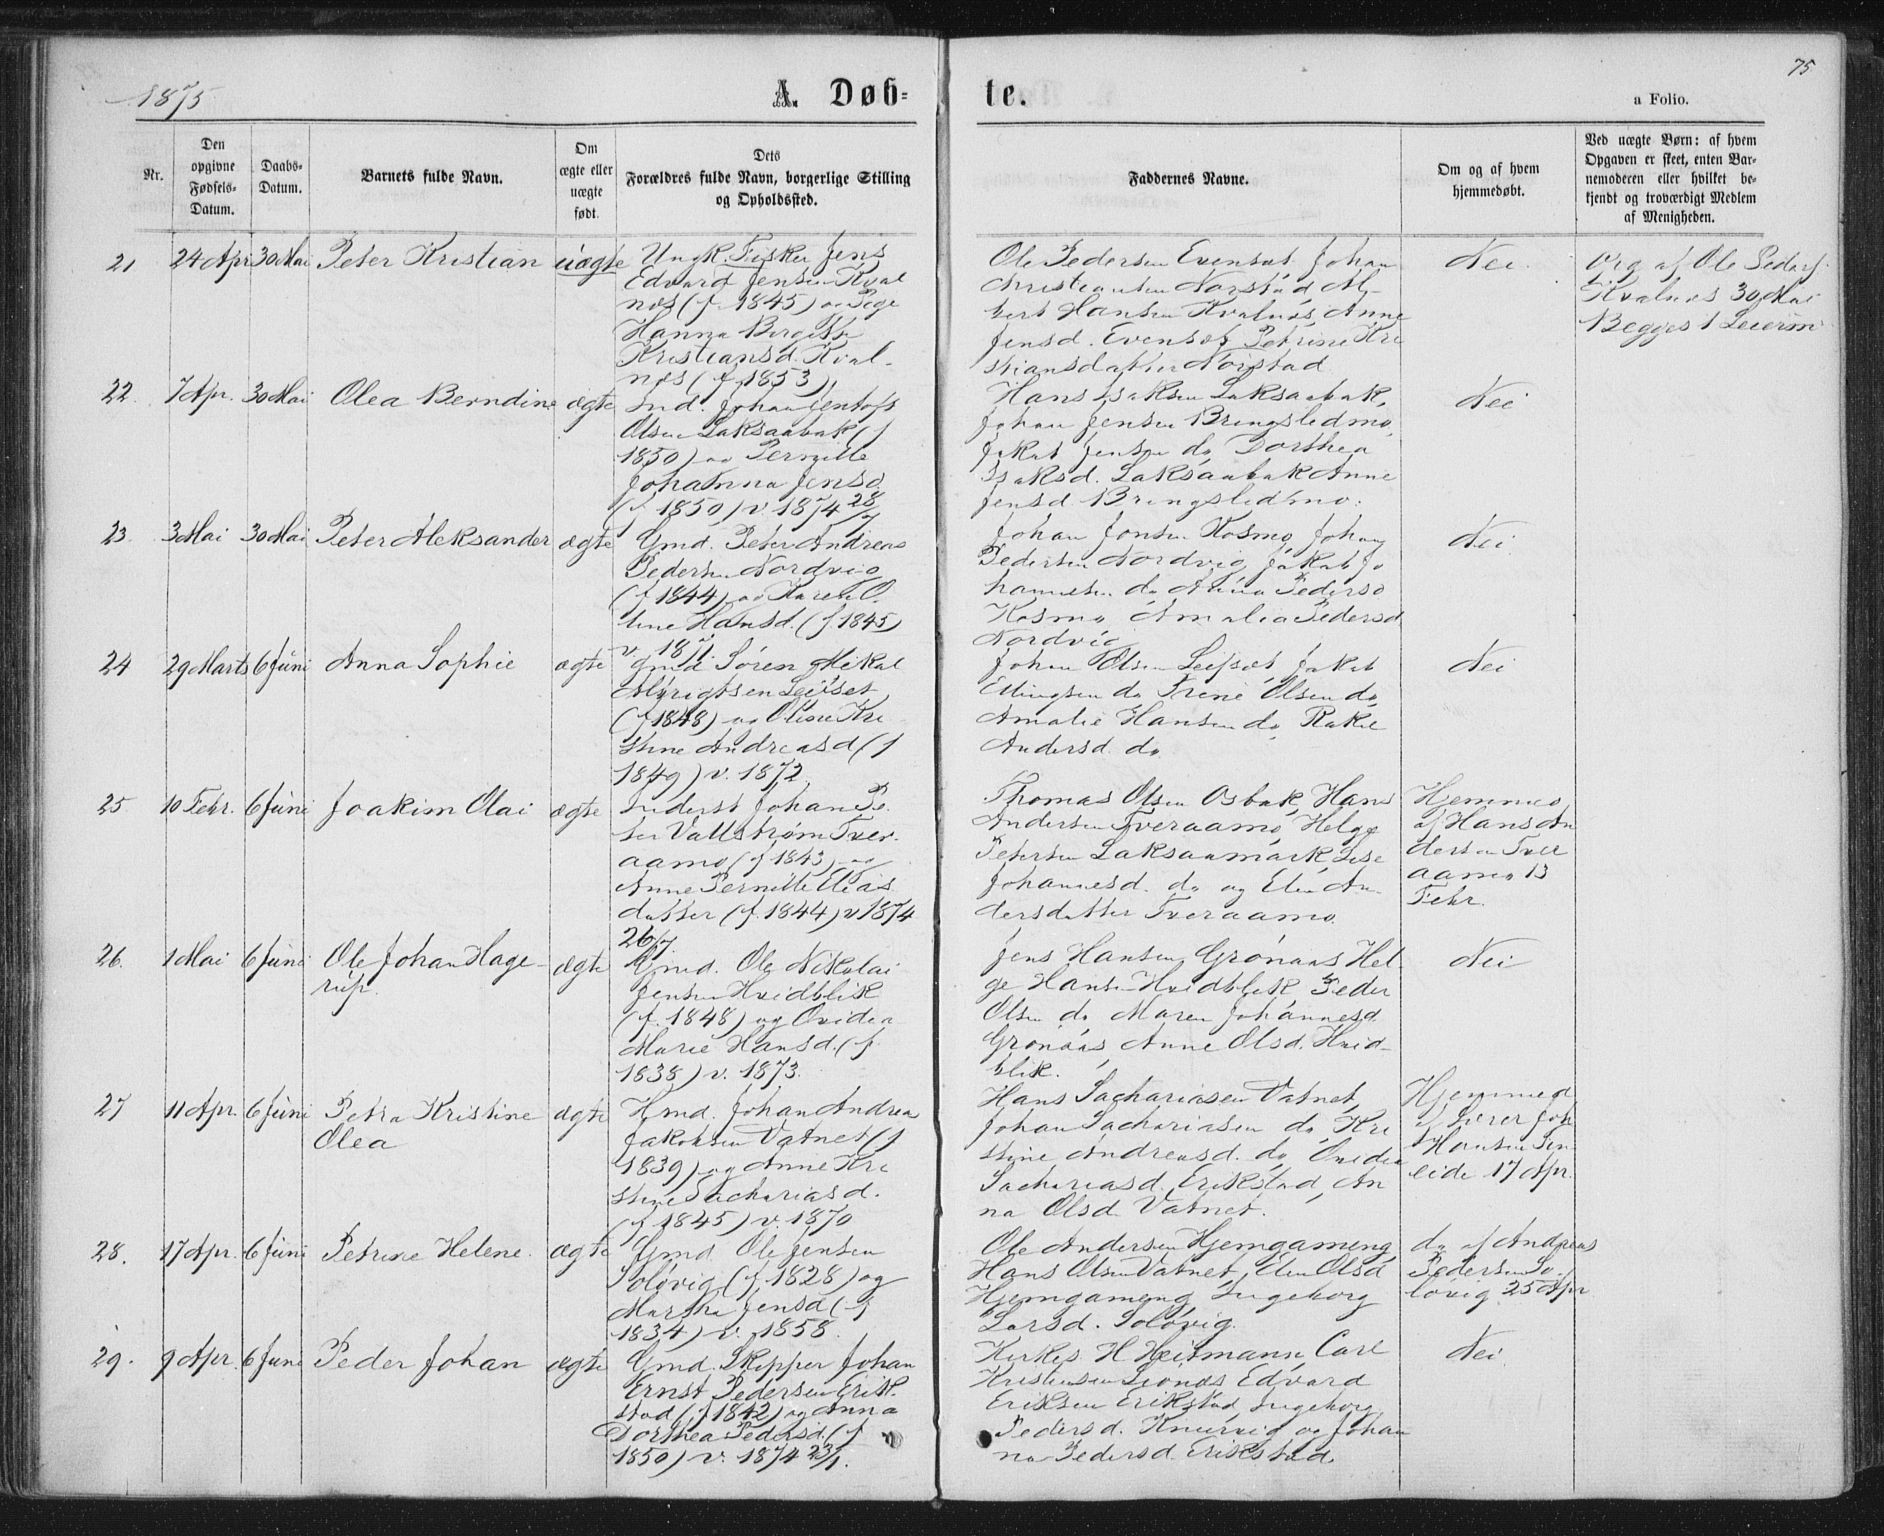 1875
A. Døb-
te.
75
a Folio.
Nr.
Den
opgivne
Fødsels-
Datum.
Daabs-
Datum.
Barnets fulde Navn.
Om
ægte eller
uægte
født.
Dets
Forældres fulde Navn, borgerlige Stilling
og Opholdssted.
Faddernes Navne.
Om og af hvem
hjemmedøbt.
Ved uægte Børn: af hvem
Opgaven er skeet, enten Bar-
nemoderen eller hvilket be-
kjendt og troværdigt Medlem
af Menigheden.
21 24 Apr 30 Mai Peter Kristian uægte
Ungk. Fisker Jens
Edvard Jensen Kval
næs (f. 1845) og Pige
Hanna Birgitte
Kristiansd. Kval-
næs (f. 1853)
Ole Pedersen Evensæt Johan
Christiansen Norstad Al-
bert Hansen Kvalnæs Anne
Jensd. Evensæt Petrine Kri
stiansdatter Norstad
Nei
Opg af Ole Peders.
Kvalnæs 30 Mai
Begges 1 Leierm
22. 7 Apr. 30 Mai Olea Berndine ægte
Ind. Johan Jentoft
Olsen Laksaabak (f
1850) og Pernille
Johanna Jensd
(f. 1850) v. 1874 28/7
Hans Isaksen Laksaabak,
Johan Jensen Bringsledmo,
Jakob Jensen do, Dorthea
Isaksd. Laksaabak Anne
Jensd Bringsledmo.
Nei
23. 3 Mai 30 Mai Peter Aleksander ægte
Gmd. Peter Andreas
Pedersen Nordvig
(f 1844) og Karen O.
line Hansd. (f 1845)
v. 1871.
Johan Jonsen Kosmo, Johan
Pedersen Nordvig, Jakob Jo
hannesen do Anna Pedersd
Kosmo, Amalia Pedersd
Nordvig
Nei
24 29 Marts 6 Juni Anna Sophie ægte
Gmd Søren Mikal
Albrigtsen Leifset
(f 1848) og Oline Kri
stine Andreasd (f
1849) v. 1872
Johan Olsen Leifset, Jakob
Ellingsen do Trine Olsen do,
Amalie Hansen do, Rakel
Andersd. do
Nei
25 10 Febr. 6 Juni Joakim Olai ægte
Inderst Johan Pe
ter Vallstrøm Tver-
aamo (f 1843) og
Anne Pernille Elias
datter (f. 1844) v 1874
26/7.
Thomas Olsen Osbak, Hans
Andersen Tveraamo, Helge
Petersen Laksaamark, Lise
Johannesd. do og Elen An-
dersdatter Tveraamo
Hjemmed
af Hans An
dersen Tver
aamo 13
Febr.
26. 1 Mai 6 Juni Ole Johan Hage-
rup. ægte
Gmd. Ole Nikolai
Jensen Hvidblik
(f. 1848) og Ovidia
Marie Hansd. (f.
1838) v. 1873.
Jens Hansen Grønaas Hel-
ge Hansen Hvidblik Peder
Olsen do Maren Johannesd
Grønaas, Anne Olsd. Hvid-
blik.
Nei
27 11 Apr. 6 Juni Petra Kristine
Olea ægte
Hmd. Johan Andrea
Jakobsen Vatnet (f
1839) og Anne Kri
stine Sachariasd.
(f 1845) v. 1870
Hans Sachariasen Vatnet,
Johan Sachariasen do, Kri
stine Andreasd. do, Ovidia
Sachariasd. Erikstad, An
na Olsd Vatnet.
Hjemmed
af Lærer Joh
Hansen
17 Apr.
28. 17 Apr. 6 Juni Petrine Helene. ægte
Gmd Ole Jensen
Soløvig (f 1828) og
Martha Jensd (f
1834) v. 1858.
Ole Andersen Hjemgameng,
Hans Olsen Vatnet, Elen Olsd
Hjemgameng Ingeborg
Larsd. Soløvig.
do af Andreas
Pedersen So-
løvig 25 Apr
29. 9 Apr. 6 Juni Peder Johan ægte
Gmd. Skipper Johan
Ernst Pedersen Erik-
stad (f 1842) og Anna
Dorthea Pedersd. (f
1850) v. 1874 23/1.
Kirkes. H Heitmann Carl
Kristensen Leonæs Edvard
Eriksen Erikstad Ingeborg
Pedersd. Knurvig og Johan
na Pedersd. Erikstad
Nei